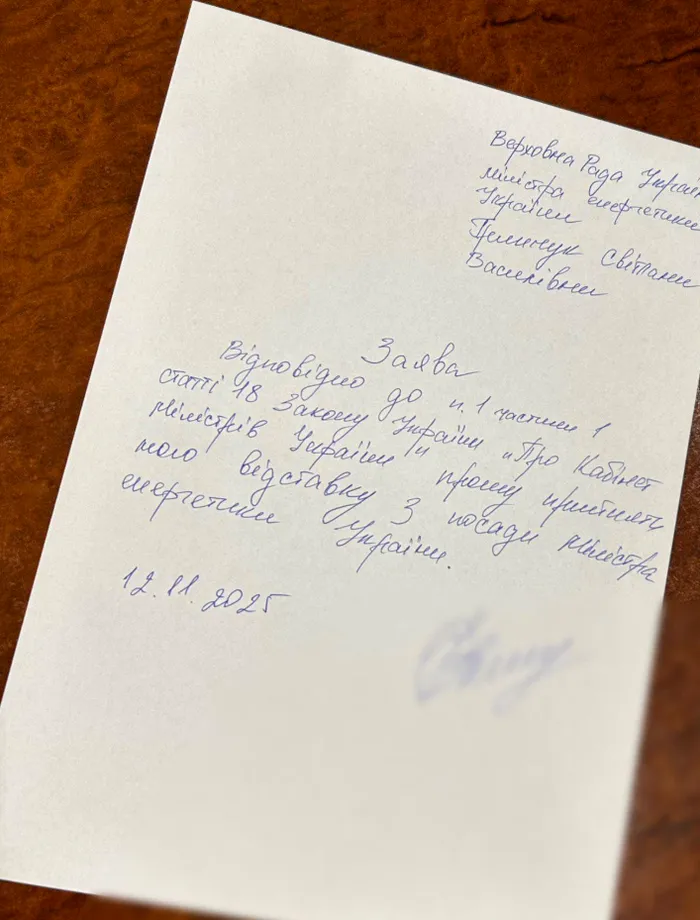 Верховна Рада Украї
Міністра енергетики
України
Гринчук Світлани
Василівни
Заява
Відповідно до п. 1 частини 1
статті 18 Закону України „Про Кабінет
Міністрів України" прошу прийняти
мою відставку з посади Міністра
енергетики України.
12.11.2025